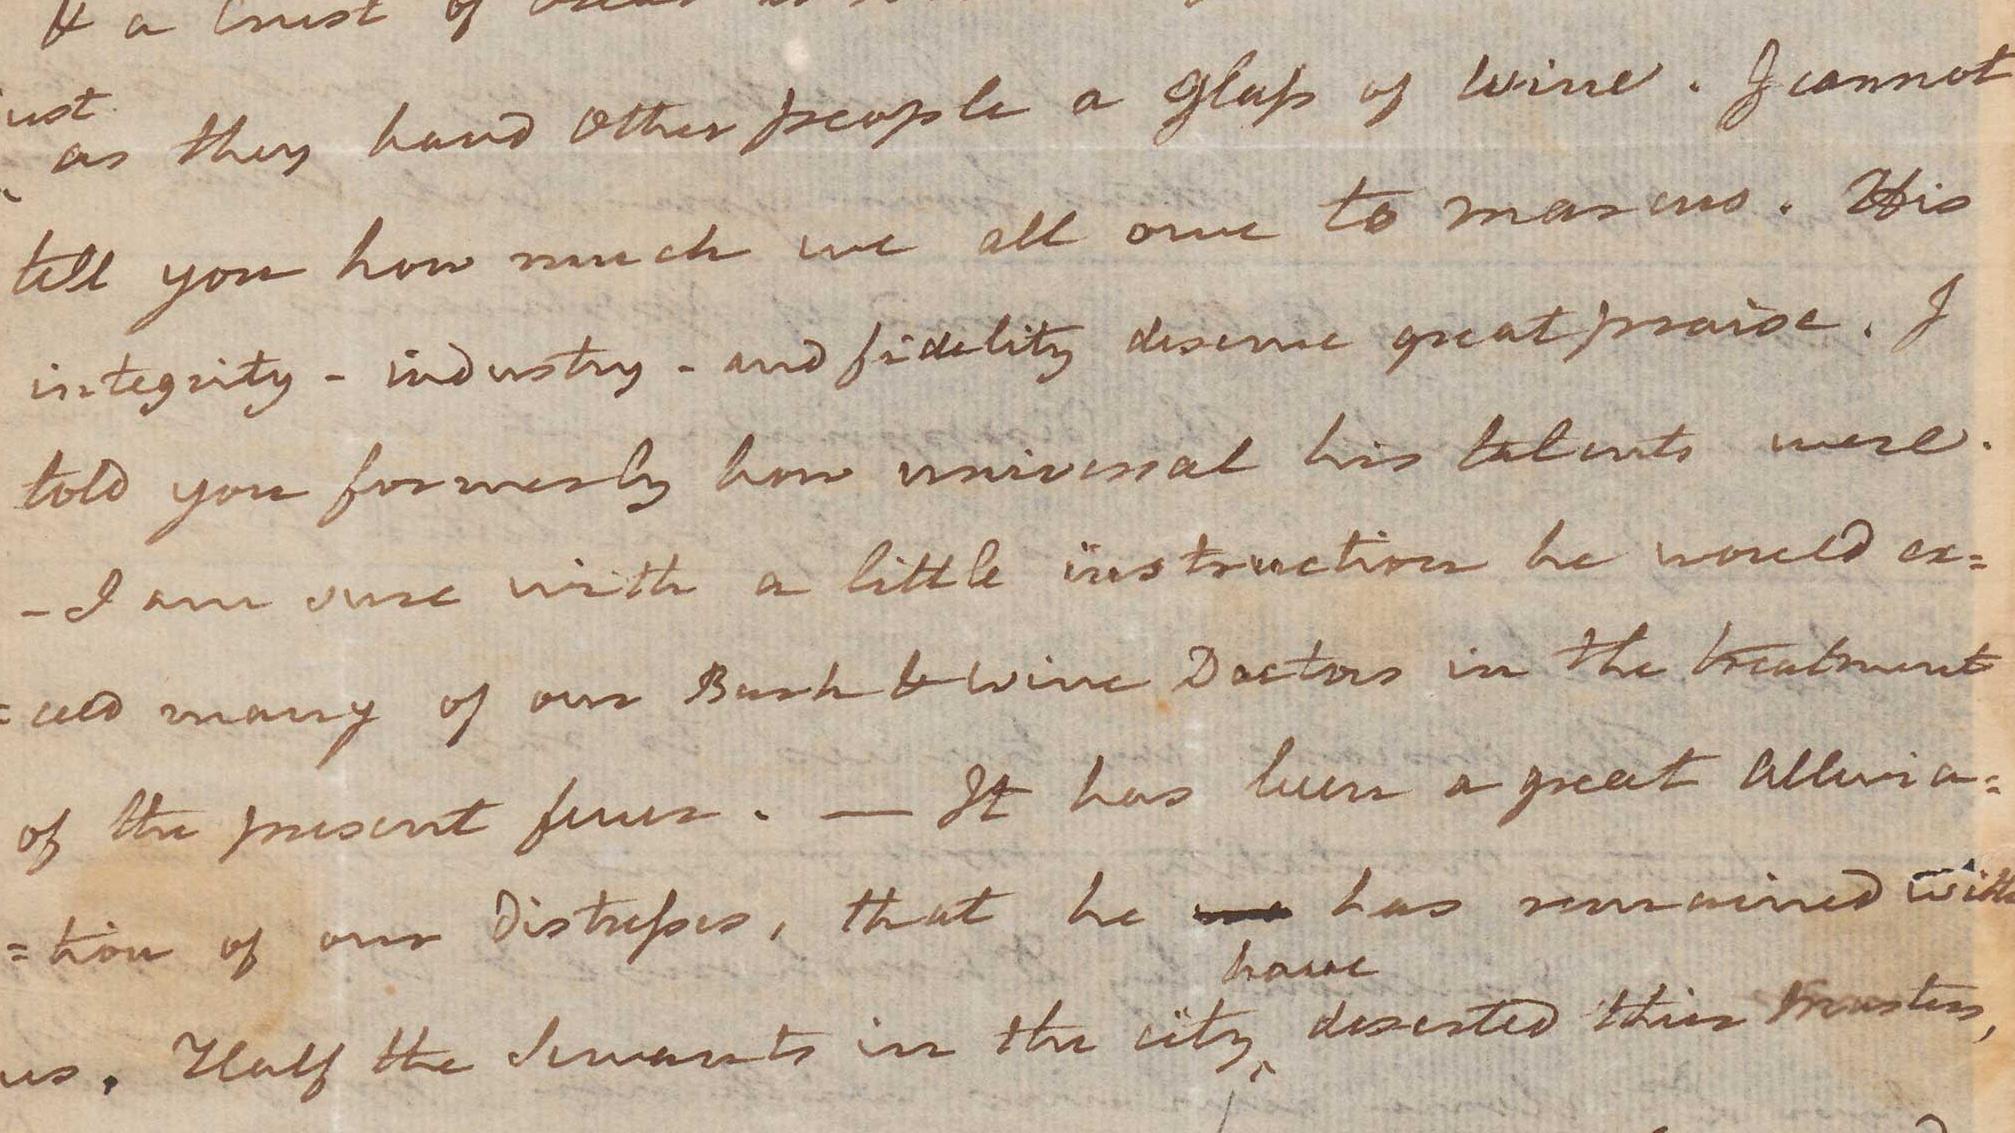 & a crust of bread
just
as they hand other people a Glass of wine. I cannot
tell you how much we all owe to Marcus. His
integrity - industry - and fidelity deserve great praise. I
told you formerly how universal his talents were.
- I am sure with a little instruction he would ex=
=ceed many of our Bark & Wine Doctors in the treatment
of the present fever. — It has been a great Allevia=
=tion of our Distresses, that he has remained with
have
us. Half the Servants in the city ‸ deserted thier Masters,